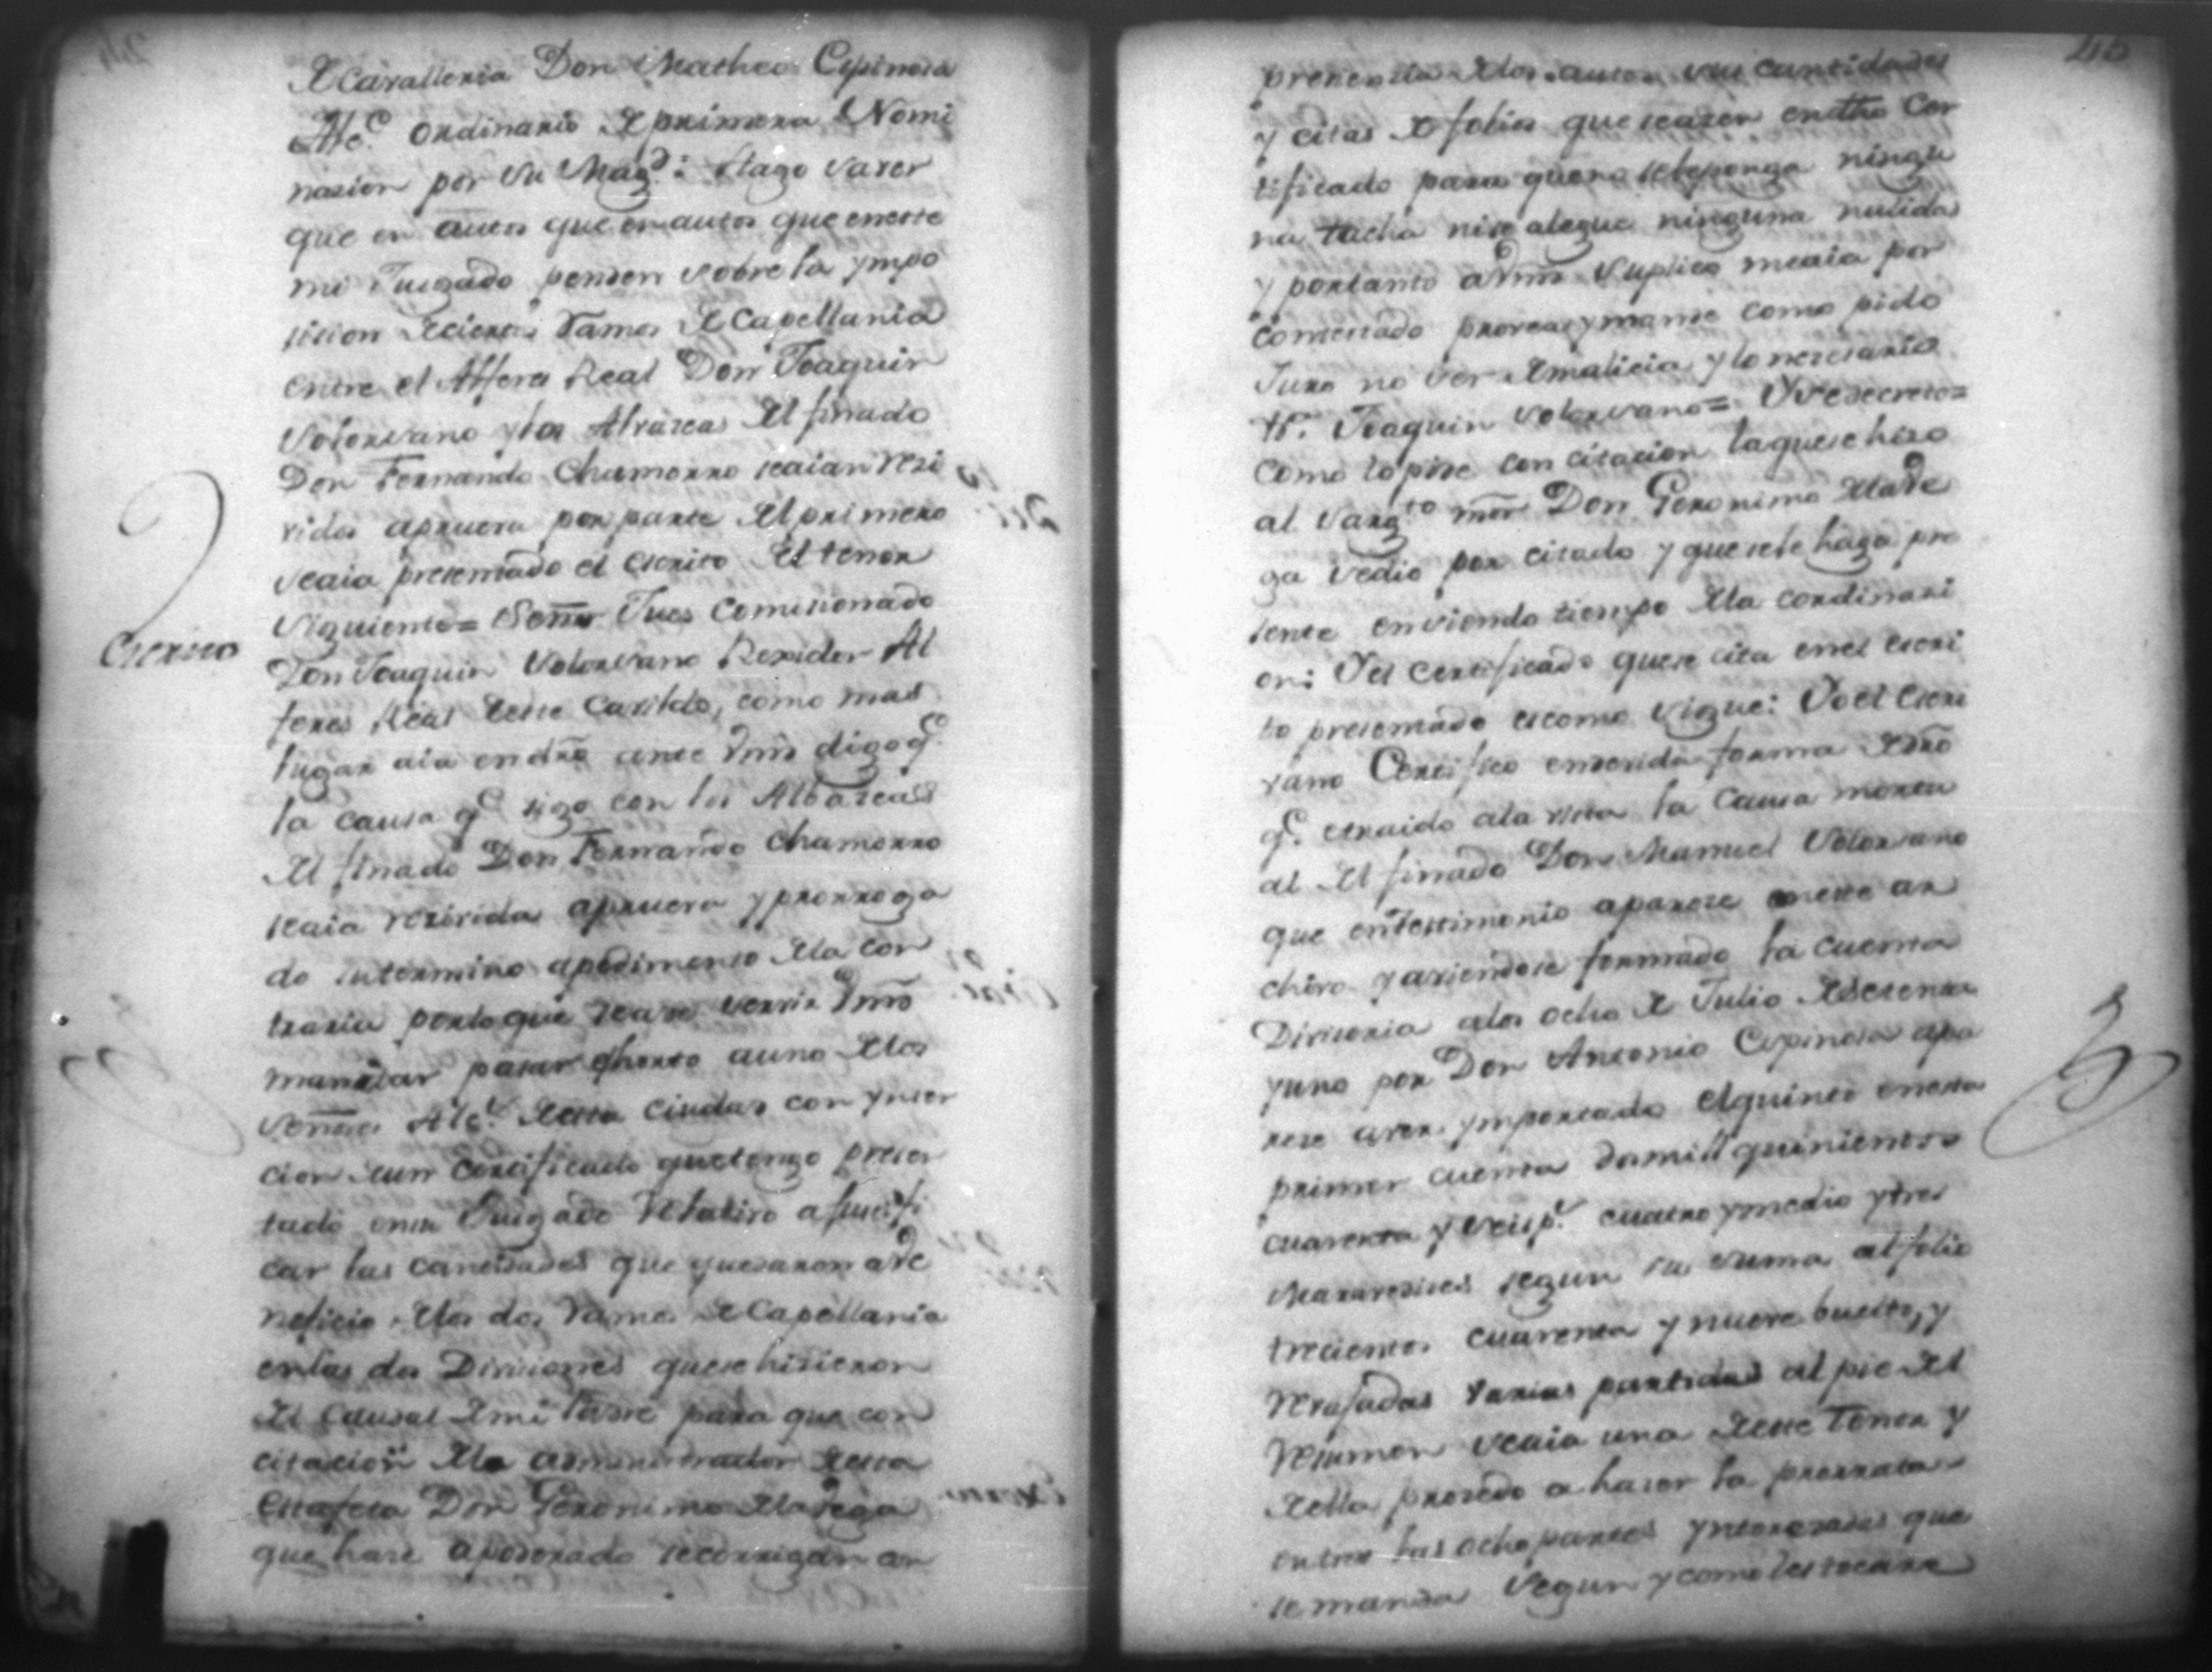 de Cavalleria Don Matheo Espinosa
Alc.e ordinario de primera Nomi
nasion por su Mag.d: Hago saver
que en autos que en autos que eneste
mi Jusgado penden sobre la ympo
sision de ciertos Ramos de Capellania
entre el Alfere Real Don Joaquin
Solorsano y los Alvaseas del finado
Don Fernando Chamorro seaian resi
vidos aprueva por parte del primero
seaia presentado el escrito del tenor
Escrito
siguiente= Señor Jues Comisionado
Don Joaquin Solorsano Rexidor Al
feres Real deste Cavildo, como mas
lugar aia endro ante Vm digo q.e
la causa q.e sigo con los Albaseas
del finado Don Fernando Chamorro
seaia resivida aprueva y prorroga
do sutermino apedimento dela con
traria porloque seade servir Vm
mandar pasar exhorto auno delos
señores Alc.s desta ciudad con ynser
cion deun certificado que tengo presen
tado enese Jusgado relativo a
car las cantidades que quedaron abe
neficio delos dos ramos de Capellania
enlas dos Divisiones quese hisieron
del caudal de mi Padre para que con
citacion del administrador desta
estafeta Don Geronimo dela Vega
que hase apoderado secorrigan con
45
presencia delos autos sus cantidades
y citas de folios que seasen endho Cer
tificado para queno seleponga ningu
na tacha nise alegue ninguna nulidad
y portanto aVm suplico meaia por
contestado provea y mande como pido
Juro no ser demalicia y lo nesesario
Joaquin Solorsano= Vse decreto=
Como lo pide con citacion laquese hiso
al Sarg.to mor Don Geronimo delaVe
ga sedio por citado y que sele haga pre
sente ensiendo tiempo dela cordinasi
on: Y el certificado quese cita enel escri
to presentado escomo sigue: Yo el Escri
vano Certifico endevida forma de dro
q.e etraido ala vista la Causa mortu
al del finado Don Manuel Solorsano
que entestimonio aparese eneste ar
chivo y aviendose formado la cuenta
Divisoria alos ocho de Julio desetenta
yuno por Don Antonio Espinosa apa
rese aver ymportado elquinto enesta
primer cuenta dosmill quinientos
cuarenta y seis p.s cuatro ymedio ytres
maravedises segun su suma alfolio
tresientos cuarenta y nueve buelto, y
revajadas varias partidas al pie del
resumen seaia una deste tenor y
della prosedo a haser la prorrata
entre las ocho partes ynteresadas que
se manda segun y como lestocare